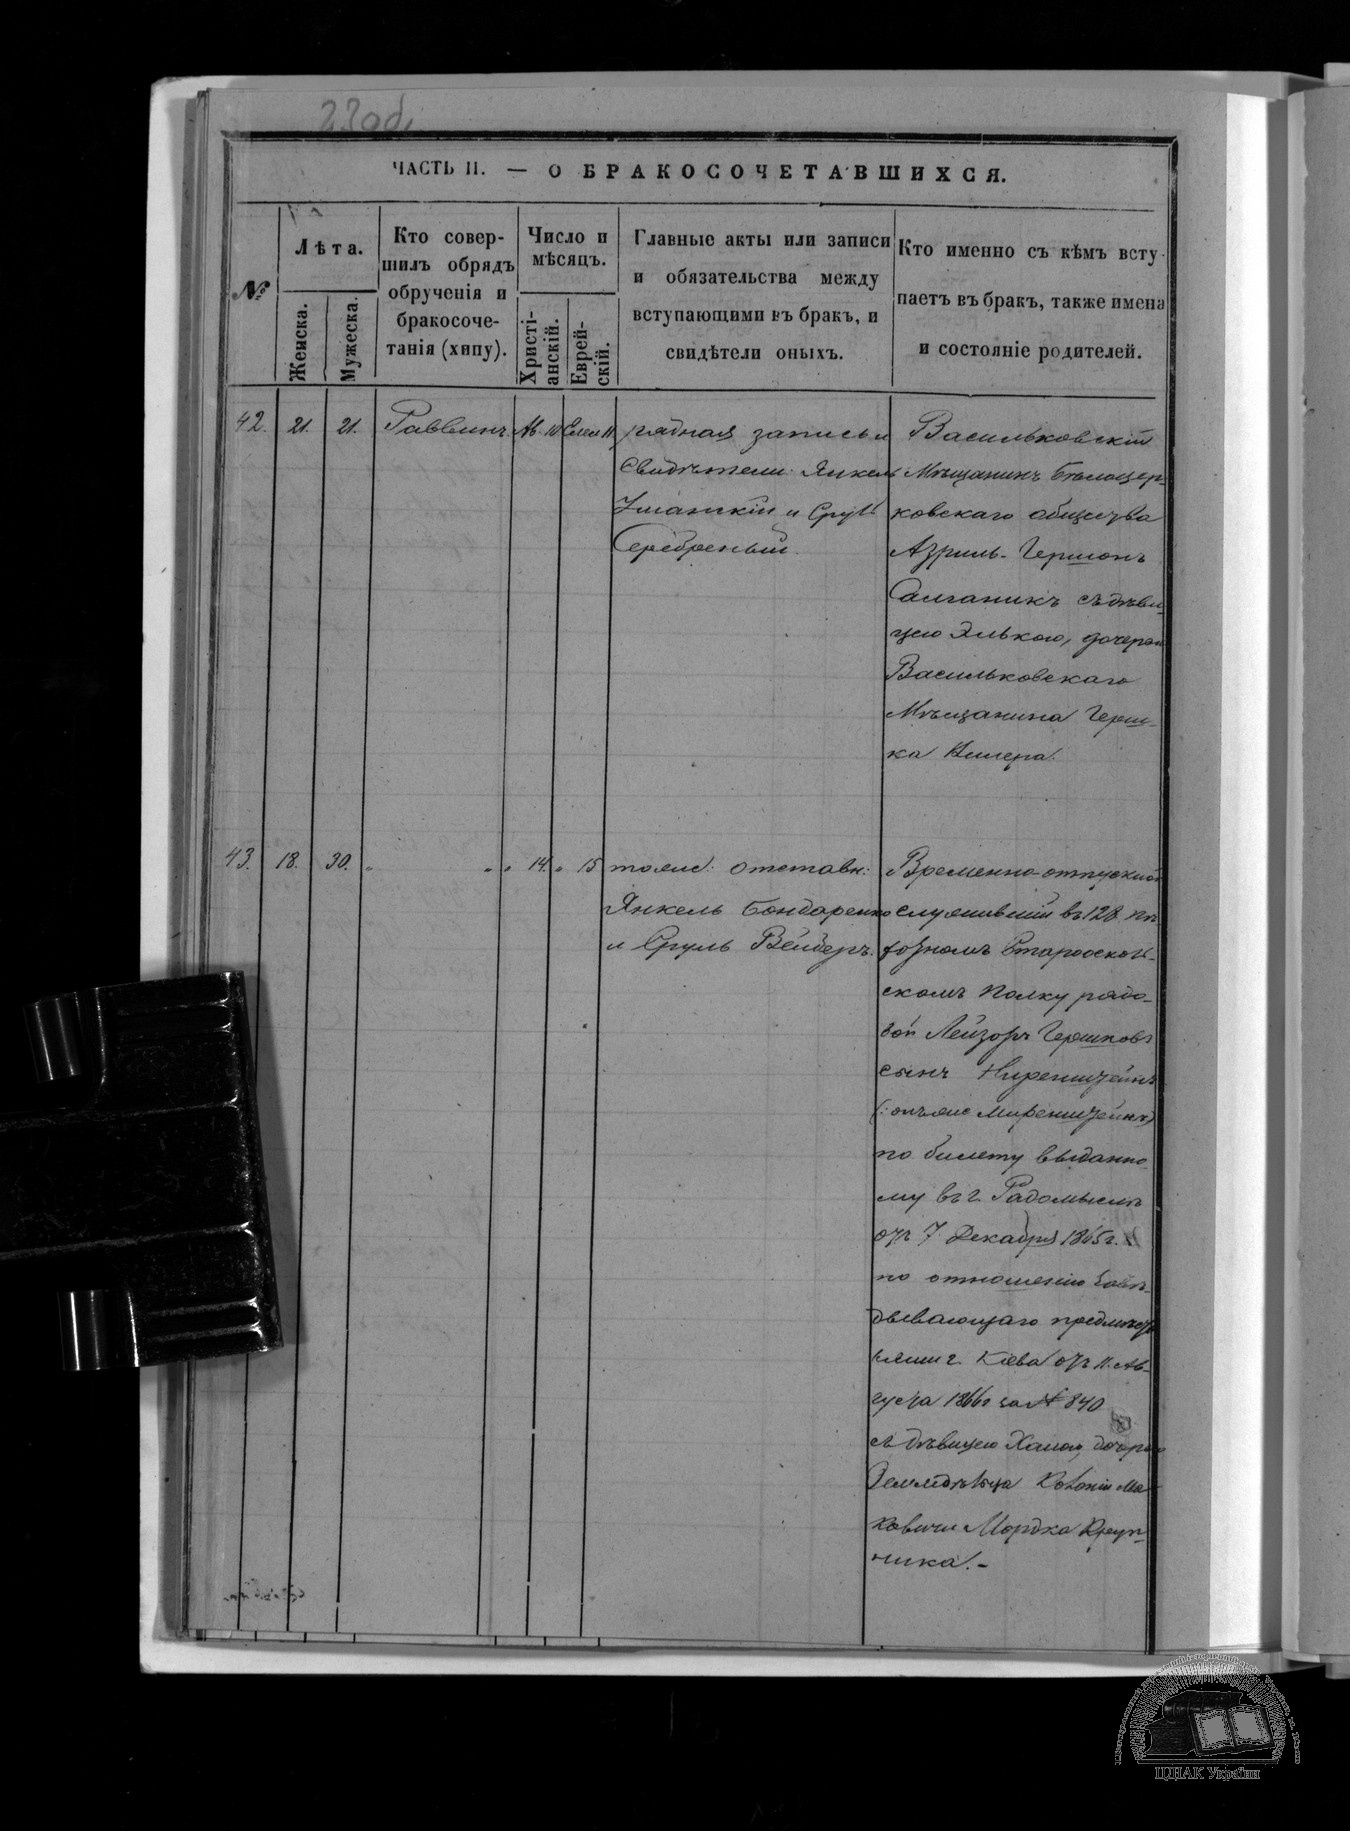 23об.
ЧАСТЬ II. — О БРАКОСОЧЕТАВШИХСЯ.
№
Лѣта.
Женска.
Мужеска.
Кто совер-
шилъ обрядъ
обрученія и
бракосоче-
танія (хипу).
Число и
мѣсяцъ.
Христі-
анскій.
Еврей-
скій.
Главные акты или записи
и обязательства между
вступающими въ бракъ, и
свидѣтели оныхъ.
Кто именно съ кѣмъ всту-
паетъ въ бракъ, также имена
и состояніе родителей.
42. 21. 21. Раввинъ Ав. 10 Елел 11
рядная запись и
Свидѣтели: Янкель
Уманскій и Сруль
Серебреный
Васильковскій
Мѣщанинъ Бѣлоцер-
ковскаго общества
Азриль-Гершонъ
Салганикъ съ дѣви-
цею Элькою, дочерью
Васильковскаго
Мѣщанина Герш-
ка
43. 18. 30. " " " 14. " 15
тоже: отставн:
Янкель Бондаренко
и Сруль Вейберъ.
Временно-отпускной
служившій въ 128 пѣ
хотномъ Старооскол-
скомъ полку рядо-
вой Лейзоръ Гершковъ
сынъ Ниренштейнъ
(: онъ же Миренштейнъ)
по билету выданно
му въ г. Радомыслѣ
отъ 7 Декабря 1865 г.
по отношенію завѣ-
дывающаго
г. Кіева отъ 11. Ав-
густа 1866 г за № 840
съ дѣвицею Ханою, дочерью
Земледѣльца Колоніи Ма-
ковичи Мордка Круп-
ника. –
ЦДІАК України